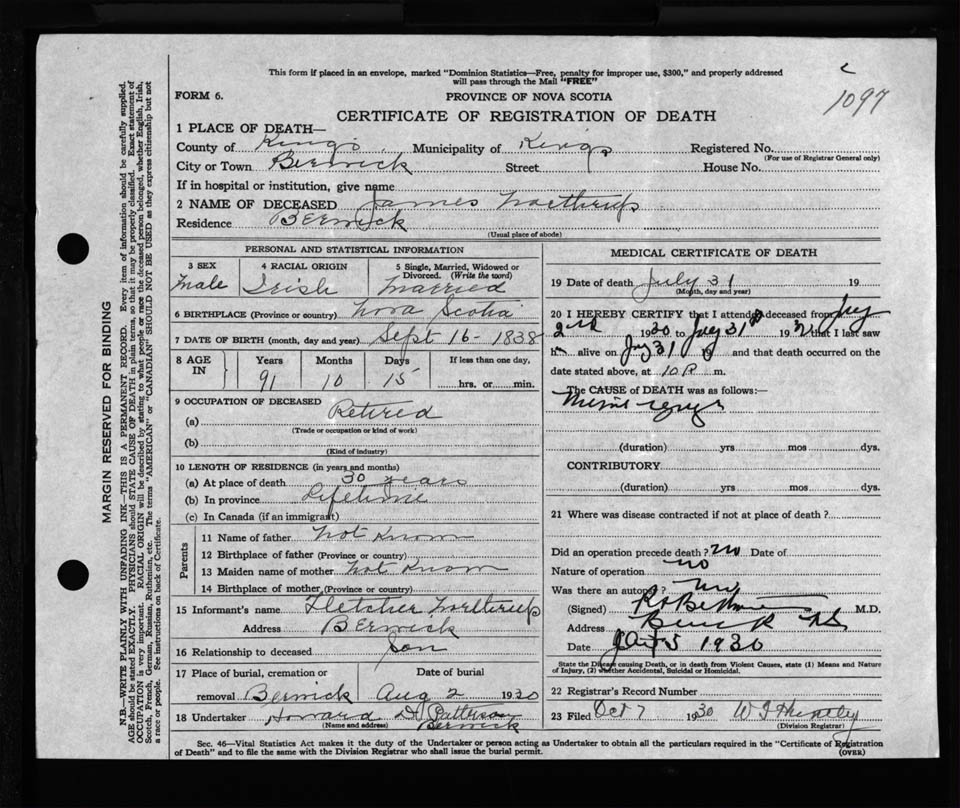 This form if placed in an envelope, marked "Dominion Statistics—Free, penalty for improper use, $300," and properly addressed
will pass through the Mail "FREE"
c
1097
FORM 6.
PROVINCE OF NOVA SCOTIA
CERTIFICATE OF REGISTRATION OF DEATH
1 PLACE OF DEATH—
County of Kings Municipality of Kings Registered No.
(For use of Registrar General only)
City or Town Berwick Street House No.
If in hospital or institution, give name
2 NAME OF DECEASED James Northrup
Residence Berwick
(Usual place of abode)
PERSONAL AND STATISTICAL INFORMATION
3 SEX
Male
4 RACIAL ORIGIN
Irish
5 Single, Married, Widowed or
Divorced. (Write the word)
Married
6 BIRTHPLACE (Province or country) Nova Scotia
7 DATE OF BIRTH (month, day and year) Sept 16 - 1838
8 AGE IN
Years Months Days If less than one day,
91 10 15 hrs. or min.
9 OCCUPATION OF DECEASED
(a) Retired
(Trade or occupation or kind of work)
(b)
(Kind of industry)
10 LENGTH OF RESIDENCE (in years and months)
(a) At place of death 30 years
(b) In province Lifetime
(c) In Canada (if an immigrant)
Parents
11 Name of father Not Known
12 Birthplace of father (Province or country)
13 Maiden name of mother Not Known
14 Birthplace of mother (Province or country)
15 Informant's name Fletcher Northrup
Address Berwick
16 Relationship to deceased Son
17 Place of burial, cremation or Date of burial
removal Berwick Aug 2 1930
18 Undertaker Howard D. Patterson
(Name and address) Berwick
MEDICAL CERTIFICATE OF DEATH
19 Date of death July 31 19
(Month, day and year)
20 I HEREBY CERTIFY that I attended deceased from July
2nd 1930 to July 31 19 that I last saw
h alive on July 31 19 and that death occurred on the
date stated above, at 10 P m.
The CAUSE of DEATH was as follows:—
(duration) yrs mos dys.
CONTRIBUTORY
(duration) yrs mos dys.
21 Where was disease contracted if not at place of death?
Did an operation precede death? no Date of
Nature of operation no
Was there an autopsy? no
(Signed) M.D.
Address Berwick NS
Date 5 1930
State the Disease causing Death, or in death from Violent Causes, state (1) Means and Nature
of Injury, (2) whether Accidental, Suicidal or Homicidal.
22 Registrar's Record Number
23 Filed Oct 7 1930
(Division Registrar)
Sec. 46—Vital Statistics Act makes it the duty of the Undertaker or person acting as Undertaker to obtain all the particulars required in the "Certificate of Registration
of Death" and to file the same with the Division Registrar who shall issue the burial permit. (OVER)
MARGIN RESERVED FOR BINDING
N.B.—WRITE PLAINLY WITH UNFADING INK—THIS IS A PERMANENT RECORD. Every item of information should be carefully supplied.
AGE should be stated EXACTLY. PHYSICIANS should STATE CAUSE OF DEATH in plain terms, so that it may be properly classified. Exact statement of
OCCUPATION is very important. RACIAL ORIGIN will be described by stating to what people or race the deceased person belonged, whether English, Irish,
Scotch, French, German, Russian, Ruthenian, etc. The terms "AMERICAN" or "CANADIAN" SHOULD NOT BE USED as they express citizenship but not
a race or people. See instructions on back of Certificate.